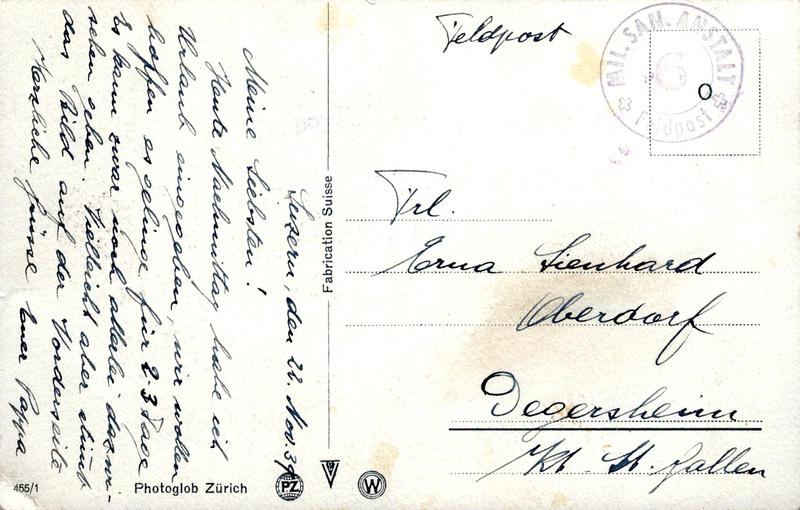 Luzern, den 22. Nov. 39
Meine Liebsten!
Heute Nachmittag habe ich
Urlaub eingegeben, wir wollen
hoffen es gelinge für 2-3 Tage
Es kann zwar noch allerlei dazwi-
schen gehen. Vielleicht aber stimmt
das Bild auf der Vorderseite
Herzliche Grüsse Euer Pappa
455/1
Photoglob Zürich
PZ
W
Fabrication Suisse
Feldpost
MIL. SAN. ANSTALT
6
Feldpost
Frl.
Erna Lienhard
Oberdorf
Degersheim
Kt. St. Gallen